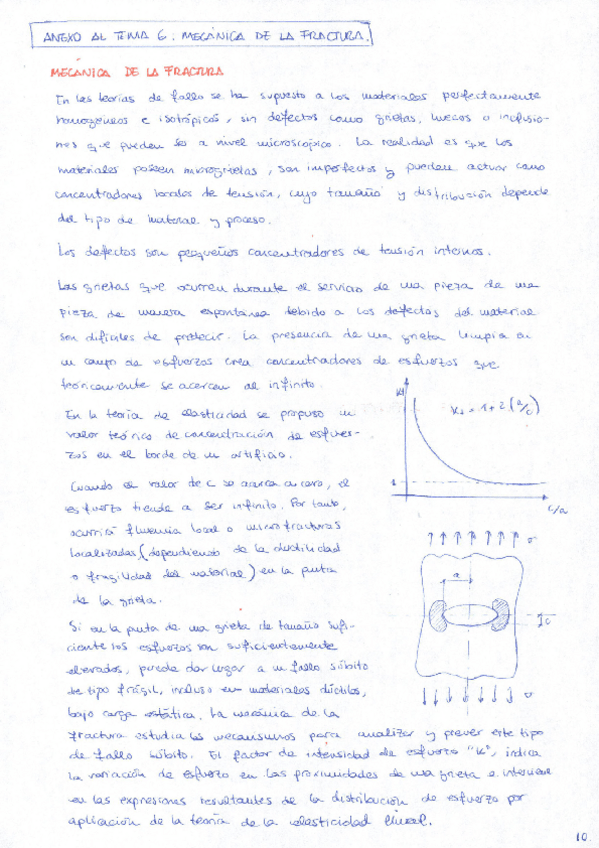 ANEXO AL TEMA 6: MECÁNICA DE LA FRACTURA.
MECÁNICA DE LA FRACTURA
En las teorías de fallo se ha supuesto a los materiales perfectamente
homogéneos e isotrópicos, sin defectos como grietas, huecos o inclusio-
nes que pueden ser a nivel microscópico. La realidad es que los
materiales poseen microgrietas, son imperfectos y pueden actuar como
concentradores locales de tensión, cuyo tamaño y distribución depende
del tipo de material y proceso.
Los defectos son pequeños concentradores de tensión internos.
Las grietas que ocurren durante el servicio de una pieza de una
pieza de manera espontánea debido a los defectos del material
son difíciles de predecir. La presencia de una grieta limpia en
un campo de esfuerzos crea concentradores de esfuerzos que
teóricamente se acercan al infinito.
En la teoría de elasticidad se propuso un
valor teórico de concentración de esfuer-
zos en el borde de un orificio.
Kt
Kt = 1+2(a/c)
1
c/a
Cuando el valor de c se acerca a cero, el
esfuerzo tiende a ser infinito. Por tanto,
ocurrirá fluencia local o microfracturas
localizadas (dependiendo de la ductilidad
o fragilidad del material) en la punta
de la grieta.
σ
a
c
σ
Si en la punta de una grieta de tamaño sufi-
ciente los esfuerzos son suficientemente
elevados, puede dar lugar a un fallo súbito
de tipo frágil, incluso en materiales dúctiles,
bajo carga estática. La mecánica de la
fractura estudia los mecanismos para analizar y prever este tipo
de fallo súbito. El factor de intensidad de esfuerzo "K", indica
la variación de esfuerzo en las proximidades de una grieta e interviene
en las expresiones resultantes de la distribución de esfuerzo por
aplicación de la teoría de la elasticidad lineal.
10